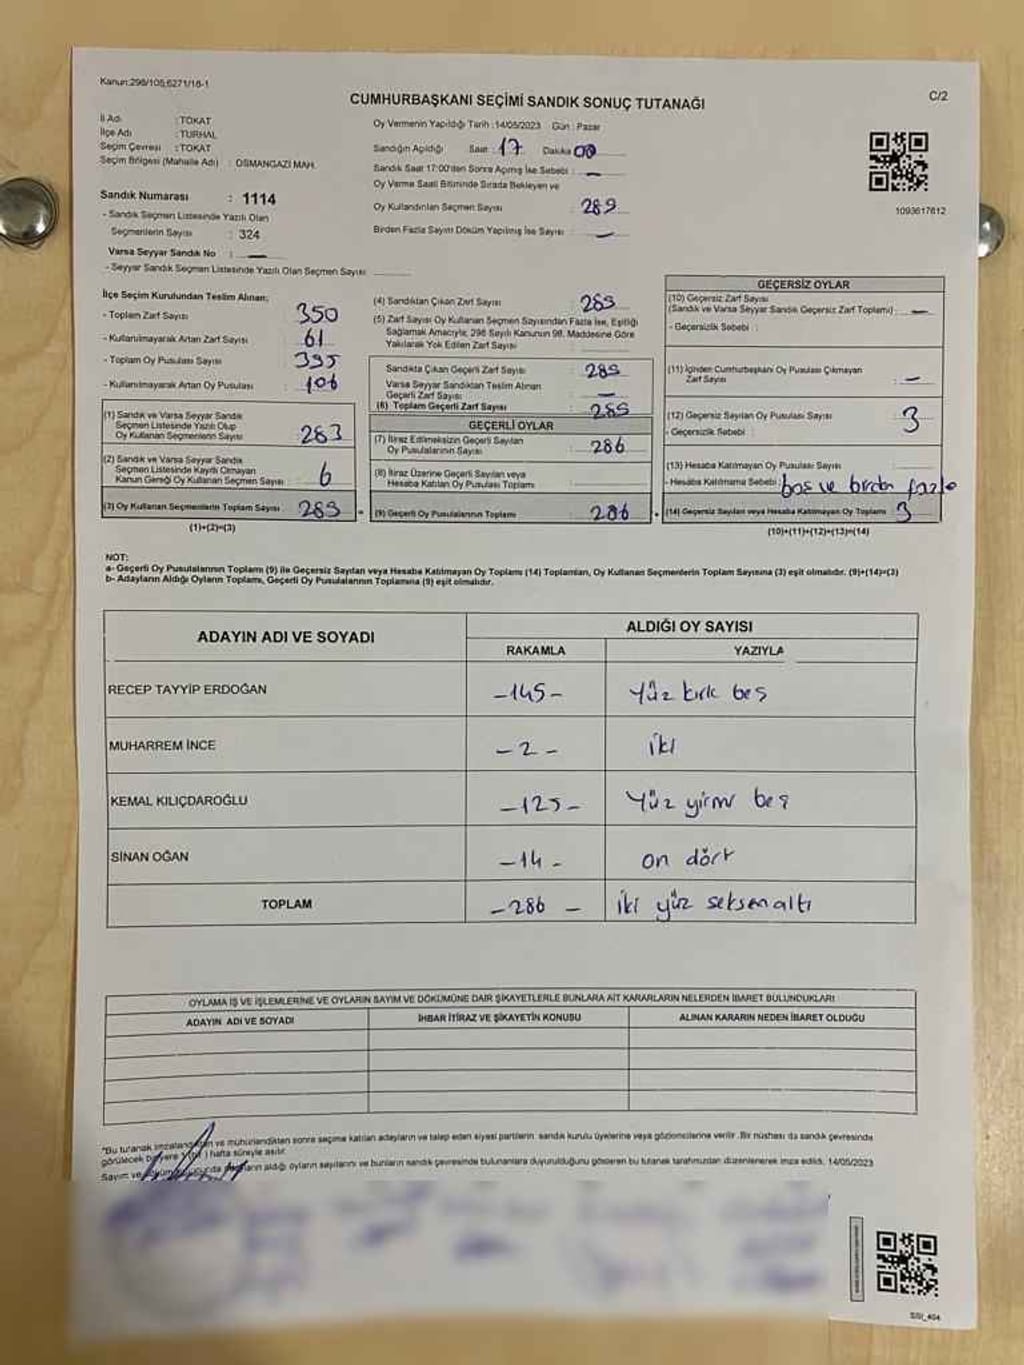 Kanun:298/105;6271/18-1
C/2
CUMHURBAŞKANI SEÇİMİ SANDIK SONUÇ TUTANAĞI
İl Adı : TOKAT
İlçe Adı : TURHAL
Seçim Çevresi : TOKAT
Seçim Bölgesi (Mahalle Adı) : OSMANGAZİ MAH.
Sandık Numarası : 1114
- Sandık Seçmen Listesinde Yazılı Olan
Seçmenlerin Sayısı : 324
Varsa Seyyar Sandık No : —
- Seyyar Sandık Seçmen Listesinde Yazılı Olan Seçmen Sayısı
Oy Vermenin Yapıldığı Tarih : 14/05/2023 Gün : Pazar
Sandığın Açıldığı Saat : 17 Dakika 00
Sandık Saat 17:00'den Sonra Açılmış İse Sebebi : —
Oy Verme Saati Bitiminde Sırada Bekleyen ve
Oy Kullandırılan Seçmen Sayısı : 289
Birden Fazla Sayım Döküm Yapılmış İse Sayısı : —
1093617612
İlçe Seçim Kurulundan Teslim Alınan;
- Toplam Zarf Sayısı : 350
- Kullanılmayarak Artan Zarf Sayısı : 61
- Toplam Oy Pusulası Sayısı : 395
- Kullanılmayarak Artan Oy Pusulası : 106
(1) Sandık ve Varsa Seyyar Sandık
Seçmen Listesinde Yazılı Olup
Oy Kullanan Seçmenlerin Sayısı : 283
(2) Sandık ve Varsa Seyyar Sandık
Seçmen Listesinde Kayıtlı Olmayan
Kanun Gereği Oy Kullanan Seçmen Sayısı : 6
(3) Oy Kullanan Seçmenlerin Toplam Sayısı : 289
(1)+(2)=(3)
(4) Sandıktan Çıkan Zarf Sayısı : 289
(5) Zarf Sayısı Oy Kullanan Seçmen Sayısından Fazla İse, Eşitliği
Sağlamak Amacıyla, 298 Sayılı Kanunun 98. Maddesine Göre
Yakılarak Yok Edilen Zarf Sayısı :
Sandıkta Çıkan Geçerli Zarf Sayısı : 289
Varsa Seyyar Sandıktan Teslim Alınan
Geçerli Zarf Sayısı : —
(6) Toplam Geçerli Zarf Sayısı : 289
GEÇERLİ OYLAR
(7) İtiraz Edilmeksizin Geçerli Sayılan
Oy Pusulalarının Sayısı : 286
(8) İtiraz Üzerine Geçerli Sayılan veya
Hesaba Katılan Oy Pusulası Toplamı :
(9) Geçerli Oy Pusulalarının Toplamı : 286
GEÇERSİZ OYLAR
(10) Geçersiz Zarf Sayısı
(Sandık ve Varsa Seyyar Sandık Geçersiz Zarf Toplamı) : —
- Geçersizlik Sebebi :
(11) İçinden Cumhurbaşkanı Oy Pusulası Çıkmayan
Zarf Sayısı : —
(12) Geçersiz Sayılan Oy Pusulası Sayısı : 3
- Geçersizlik Sebebi :
(13) Hesaba Katılmayan Oy Pusulası Sayısı :
- Hesaba Katılmama Sebebi : boş ve birden fazla
(14) Geçersiz Sayılan veya Hesaba Katılmayan Oy Toplamı : 3
(10)+(11)+(12)+(13)=(14)
NOT:
a- Geçerli Oy Pusulalarının Toplamı (9) ile Geçersiz Sayılan veya Hesaba Katılmayan Oy Toplamı (14) Toplamları, Oy Kullanan Seçmenlerin Toplam Sayısına (3) eşit olmalıdır. (9)+(14)=(3)
b- Adayların Aldığı Oyların Toplamı, Geçerli Oy Pusulalarının Toplamına (9) eşit olmalıdır.
ADAYIN ADI VE SOYADI
ALDIĞI OY SAYISI
RAKAMLA YAZIYLA
RECEP TAYYİP ERDOĞAN -145- Yüz kırk beş
MUHARREM İNCE -2- iki
KEMAL KILIÇDAROĞLU -125- Yüz yirmi beş
SİNAN OĞAN -14- on dört
TOPLAM -286- iki yüz seksen altı
OYLAMA İŞ VE İŞLEMLERİNE VE OYLARIN SAYIM VE DÖKÜMÜNE DAİR ŞİKAYETLERLE BUNLARA AİT KARARLARIN NELERDEN İBARET BULUNDUKLARI
ADAYIN ADI VE SOYADI İHBAR İTİRAZ VE ŞİKAYETİN KONUSU ALINAN KARARIN NEDEN İBARET OLDUĞU
"Bu tutanak ve mühürlendikten sonra seçime katılan adayların ve talep eden siyasi partilerin sandık kurulu üyelerine veya gözlemcilerine verilir. Bir nüshası da sandık çevresinde
görülecek bir yere ) hafta süreyle asılır.
Sayım ve aldığı oyların sayılarını ve bunların sandık çevresinde bulunanlara duyurulduğunu gösteren bu tutanak tarafımızdan düzenlenerek imza edildi. 14/05/2023
SSI_404